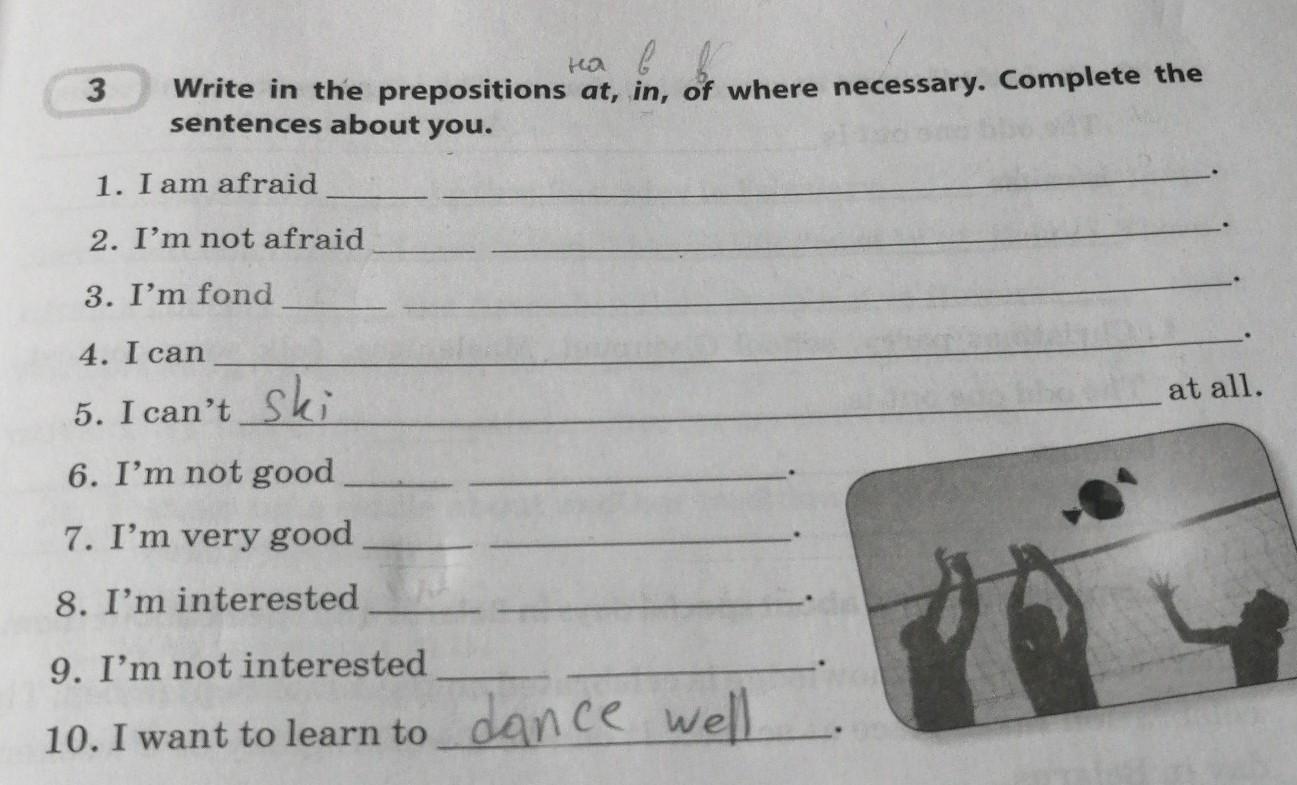 на в в
3 Write in the prepositions at, in, of where necessary. Complete the
sentences about you.
1. I am afraid ______ ______.
2. I'm not afraid ______ ______.
3. I'm fond ______ ______.
4. I can ______.
5. I can't ski at all.
6. I'm not good ______ ______.
7. I'm very good ______ ______.
8. I'm interested ______.
9. I'm not interested ______ ______.
10. I want to learn to dance well.